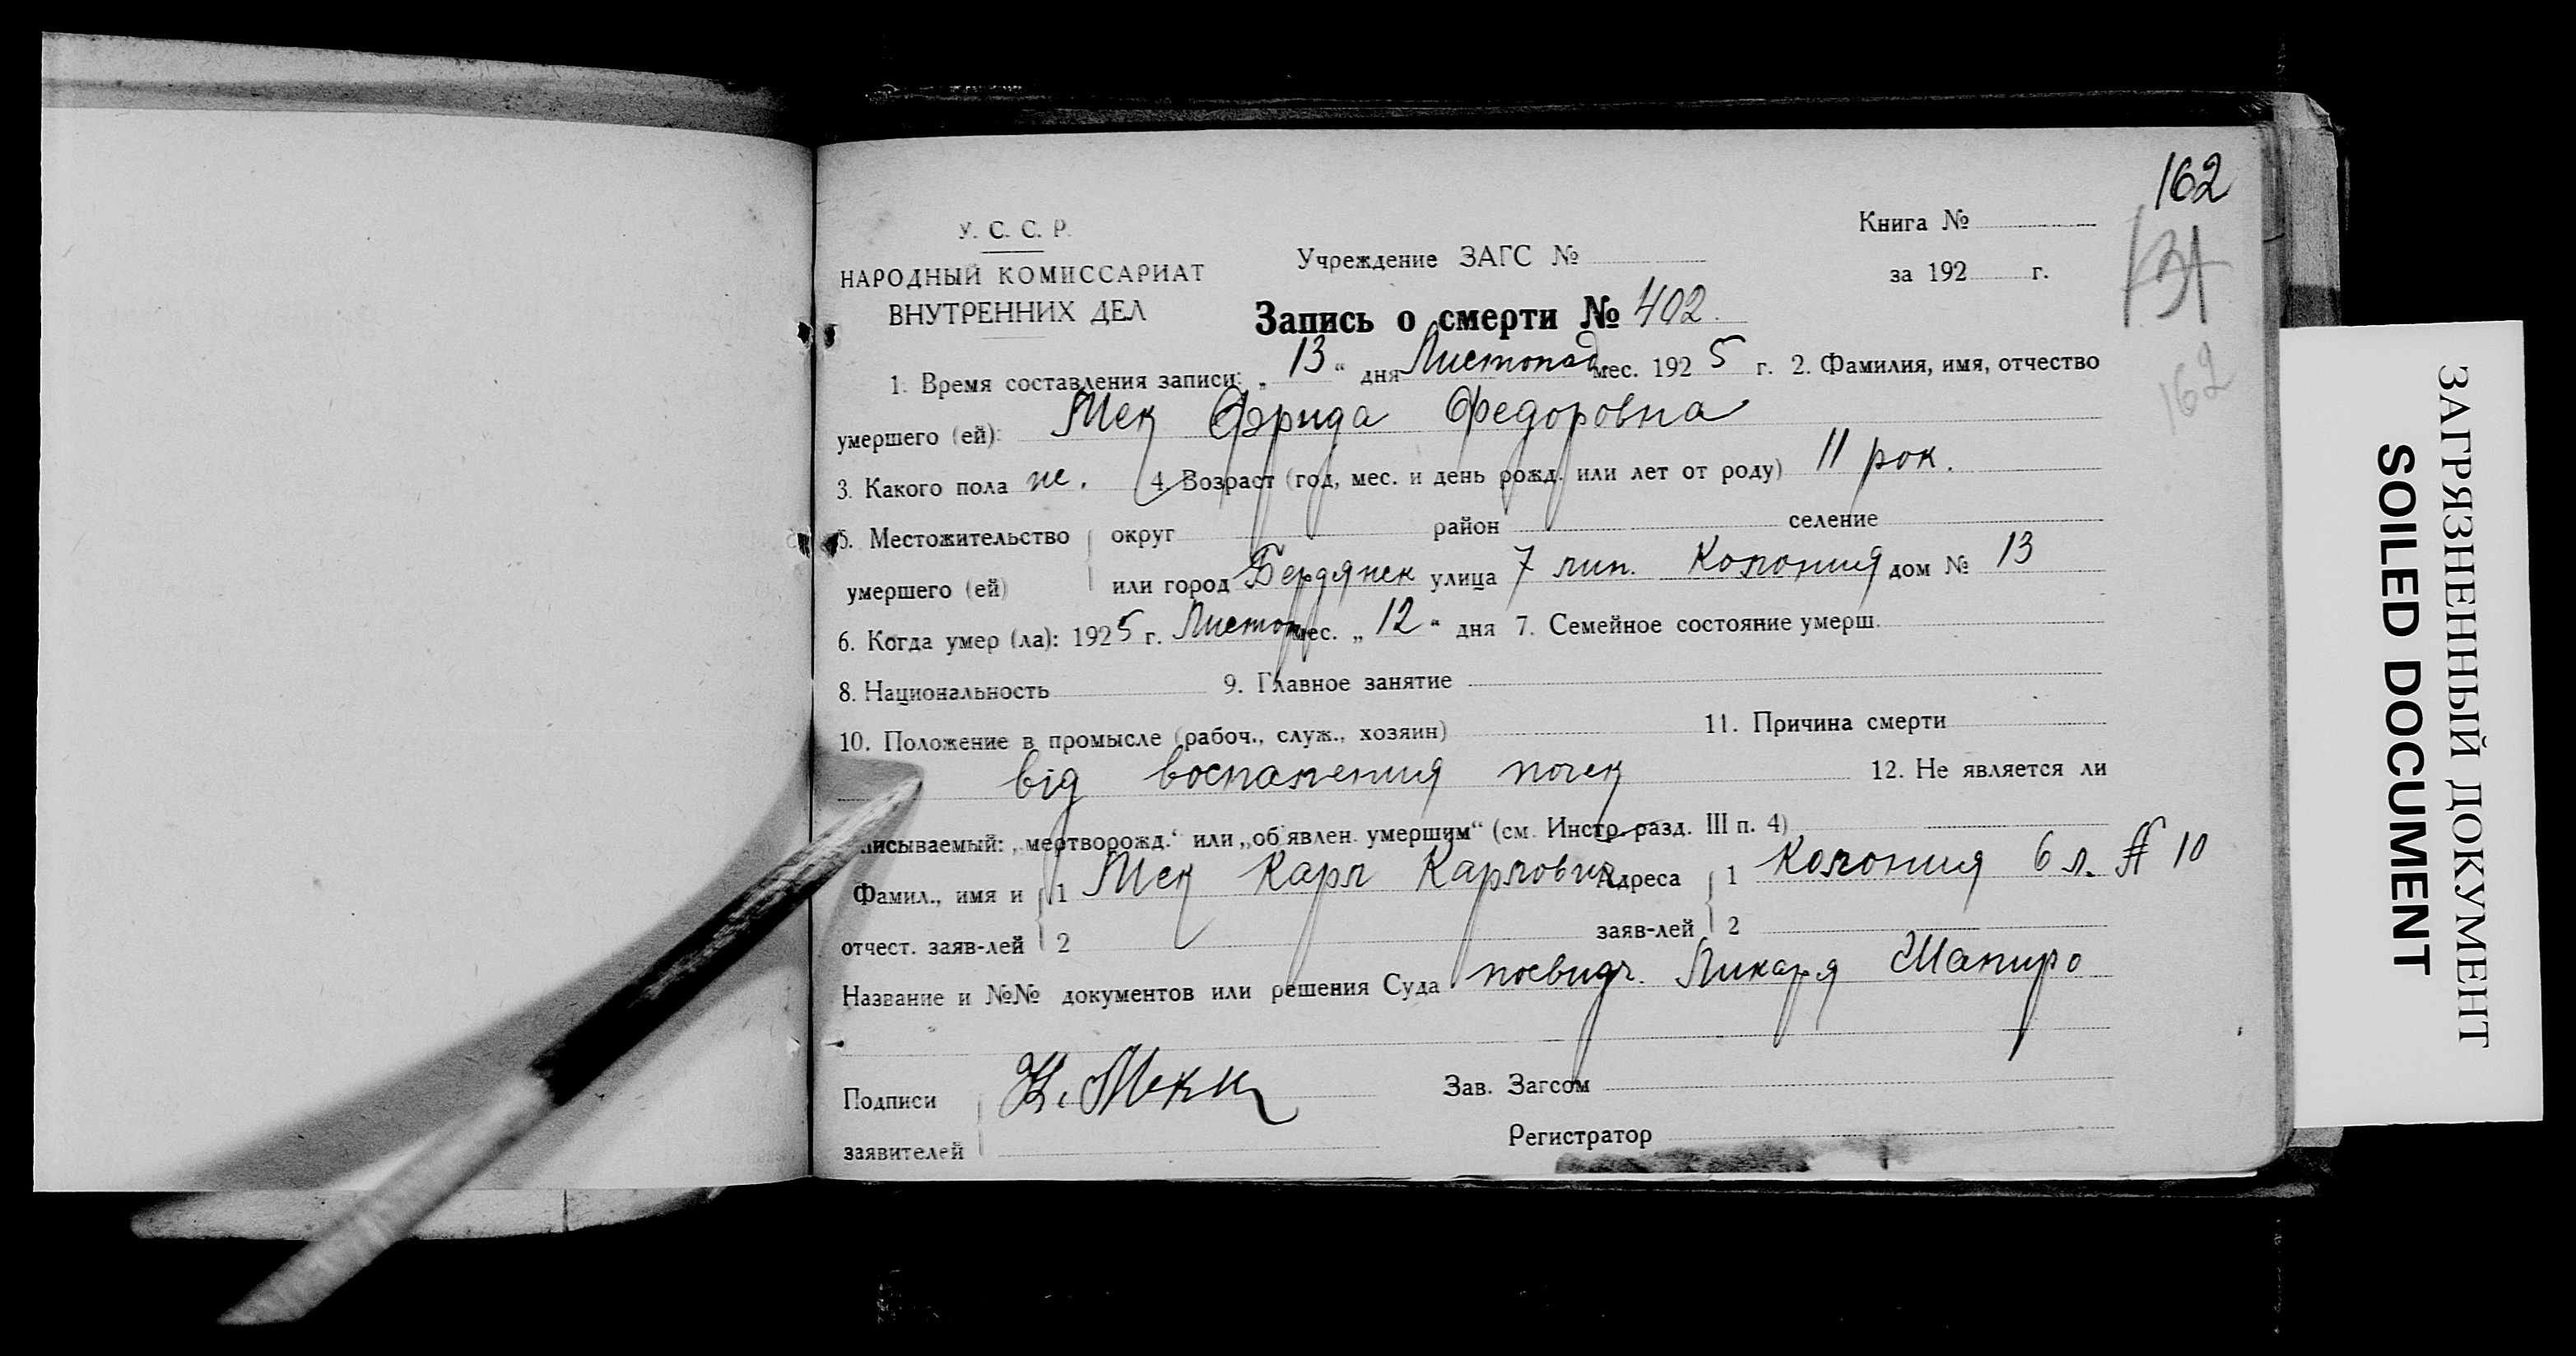 162
У. С. С. Р.
Книга №
НАРОДНЫЙ КОМИССАРИАТ
Учреждение ЗАГС №
за 192 г.
ВНУТРЕННИХ ДЕЛ
Запись о смерти № 402.
162
1. Время составления записи: „ 13 “ дня Листопад мес. 1925 г. 2. Фамилия, имя, отчество
умершего (ей): Мек Фрида Федоровна
3. Какого пола ж. 4. Возраст (год, мес. и день рожд. или лет от роду) 11 рок.
5. Местожительство округ район селение
умершего (ей) или город Бердянск улица 7 лин. Колония дом № 13
6. Когда умер (ла): 1925 г. Листоп мес. „ 12 “ дня 7. Семейное состояние умерш.
8. Национальность 9. Главное занятие
10. Положение в промысле (рабоч., служ., хозяин) 11. Причина смерти
від воспаления почек 12. Не является ли
писываемый: „мертворожд.“ или „об'явлен. умершим“ (см. Инстр. разд. III п. 4)
Фамил., имя и 1 Мек Карл Карлович Адреса 1 Колония 6 л. № 10
отчест. заяв-лей 2 заяв-лей 2
Название и №№ документов или решения Суда посвидч. Ликаря Шапиро
Подписи К. Мекк Зав. Загсом
заявителей Регистратор
ЗАГРЯЗНЕННЫЙ ДОКУМЕНТ
SOILED DOCUMENT